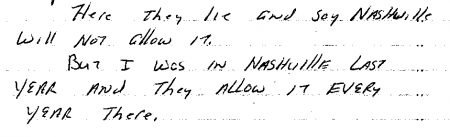 Here They lie and say NASHville
will NOT allow iT.
BuT I was iN NASHville LAST
YEAR AND They ALLOW iT EVERY
YEAR There.